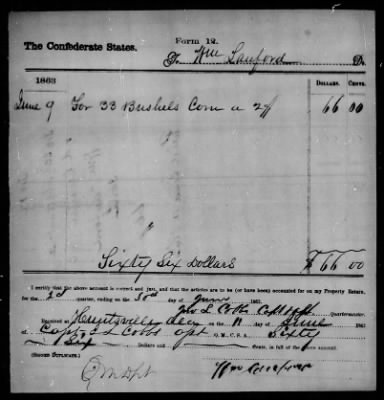 Form 12.
The Confederate States,
To Wm Lanford Dr.
DOLLARS. CENTS.
1863
June 9 For 33 Bushels Corn a 2$ 66 00
Sixty Six Dollars $66 00
I certify that the above account is correct and just, and that the articles are to (or have been) accounted for on my Property Return, for
the 2d quarter, ending on the 30th day of June 1863.
Quartermaster.
Received at Huntsville the 11 day of June 1863
of Capt Cobbs Q.M., C.S.A., Sixty
Six Dollars and Cents, in full of the above account.
(SIGNED DUPLICATE.)
Wm Lanford